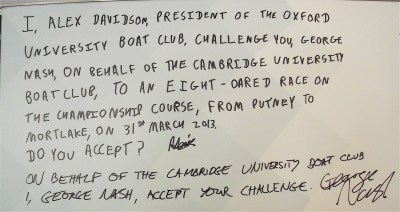 I, ALEX DAVIDSON, PRESIDENT OF THE OXFORD
UNIVERSITY BOAT CLUB, CHALLENGE YOU, GEORGE
NASH, ON BEHALF OF THE CAMBRIDGE UNIVERSITY
BOAT CLUB, TO AN EIGHT-OARED RACE ON
THE CHAMPIONSHIP COURSE, FROM PUTNEY TO
MORTLAKE, ON 31st MARCH 2013.
DO YOU ACCEPT?
ON BEHALF OF THE CAMBRIDGE UNIVERSITY BOAT CLUB
I, GEORGE NASH, ACCEPT YOUR CHALLENGE. George
Nash